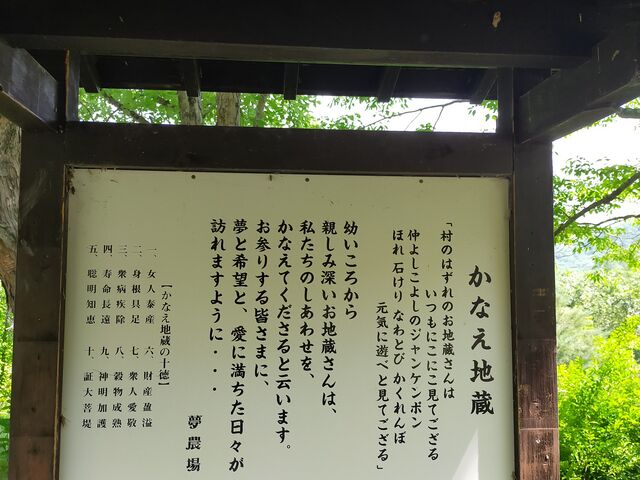 かなえ地蔵
「村のはずれのお地蔵さんは
いつもにこにこ見てござる
仲よしこよしのジャンケンポン
ほれ石けり なわとび かくれんぼ
元気に遊べと見てござる」
幼いころから
親しみ深いお地蔵さんは、
私たちのしあわせを、
かなえてくださると云います。
お参りする皆さまに、
夢と希望と、愛に満ちた日々が
訪れますように・・・
夢農場
【かなえ地蔵の十徳】
一、女人泰産 六、財産盈溢
二、身根具足 七、衆人愛敬
三、衆病疾除 八、穀物成熟
四、寿命長遠 九、神明加護
五、聡明知恵 十、証大菩堤